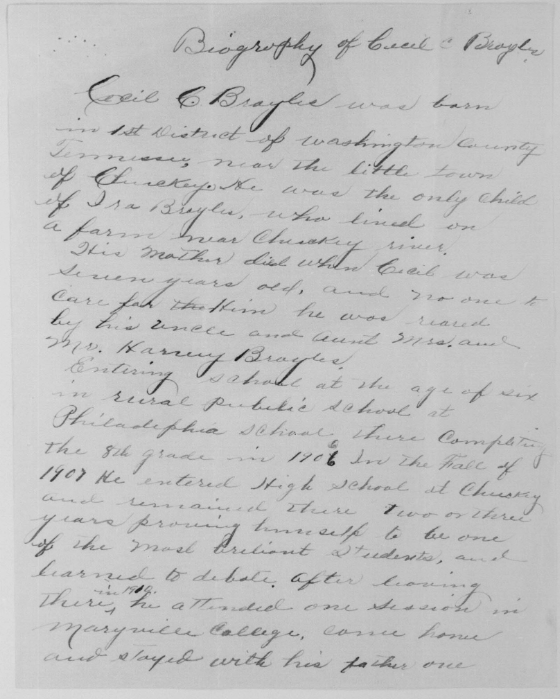 Biogrophy of Cecil C Broyles
Cecil C Broyles was born
in 1st District of washington County
Tennessee, near the little town
of Chuckey. He was the only Child
of Ira Broyles, who lived on
a farm near Chuckey river.
His Mother died when Cecil was
seven years old, and no one to
care for him he was reared
by his Uncle and Aunt Mrs. and
Mr. Harvey Broyles.
Entering school at the age of six
in rural public School at
Philadelphia School there Completing
the 8th grade in 1906 In the Fall of
1907 He entered High School at Chuckey
and remained there Two or three
years proving himself to be one
of the Most briliant Students, and
learned to debate. After leaving
there, in he attended one Session in
Maryville College, come home
and stayed with his father one